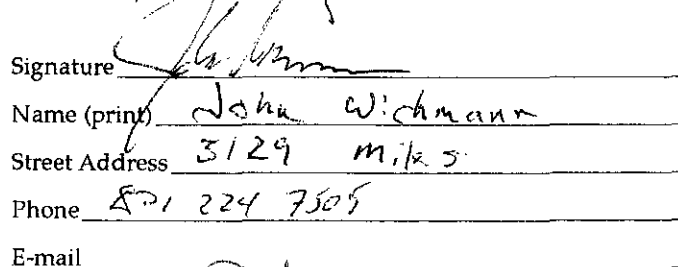 Signature
Name (print) John Wichmann
Street Address 3129 Miles
Phone 224 7505
E-mail